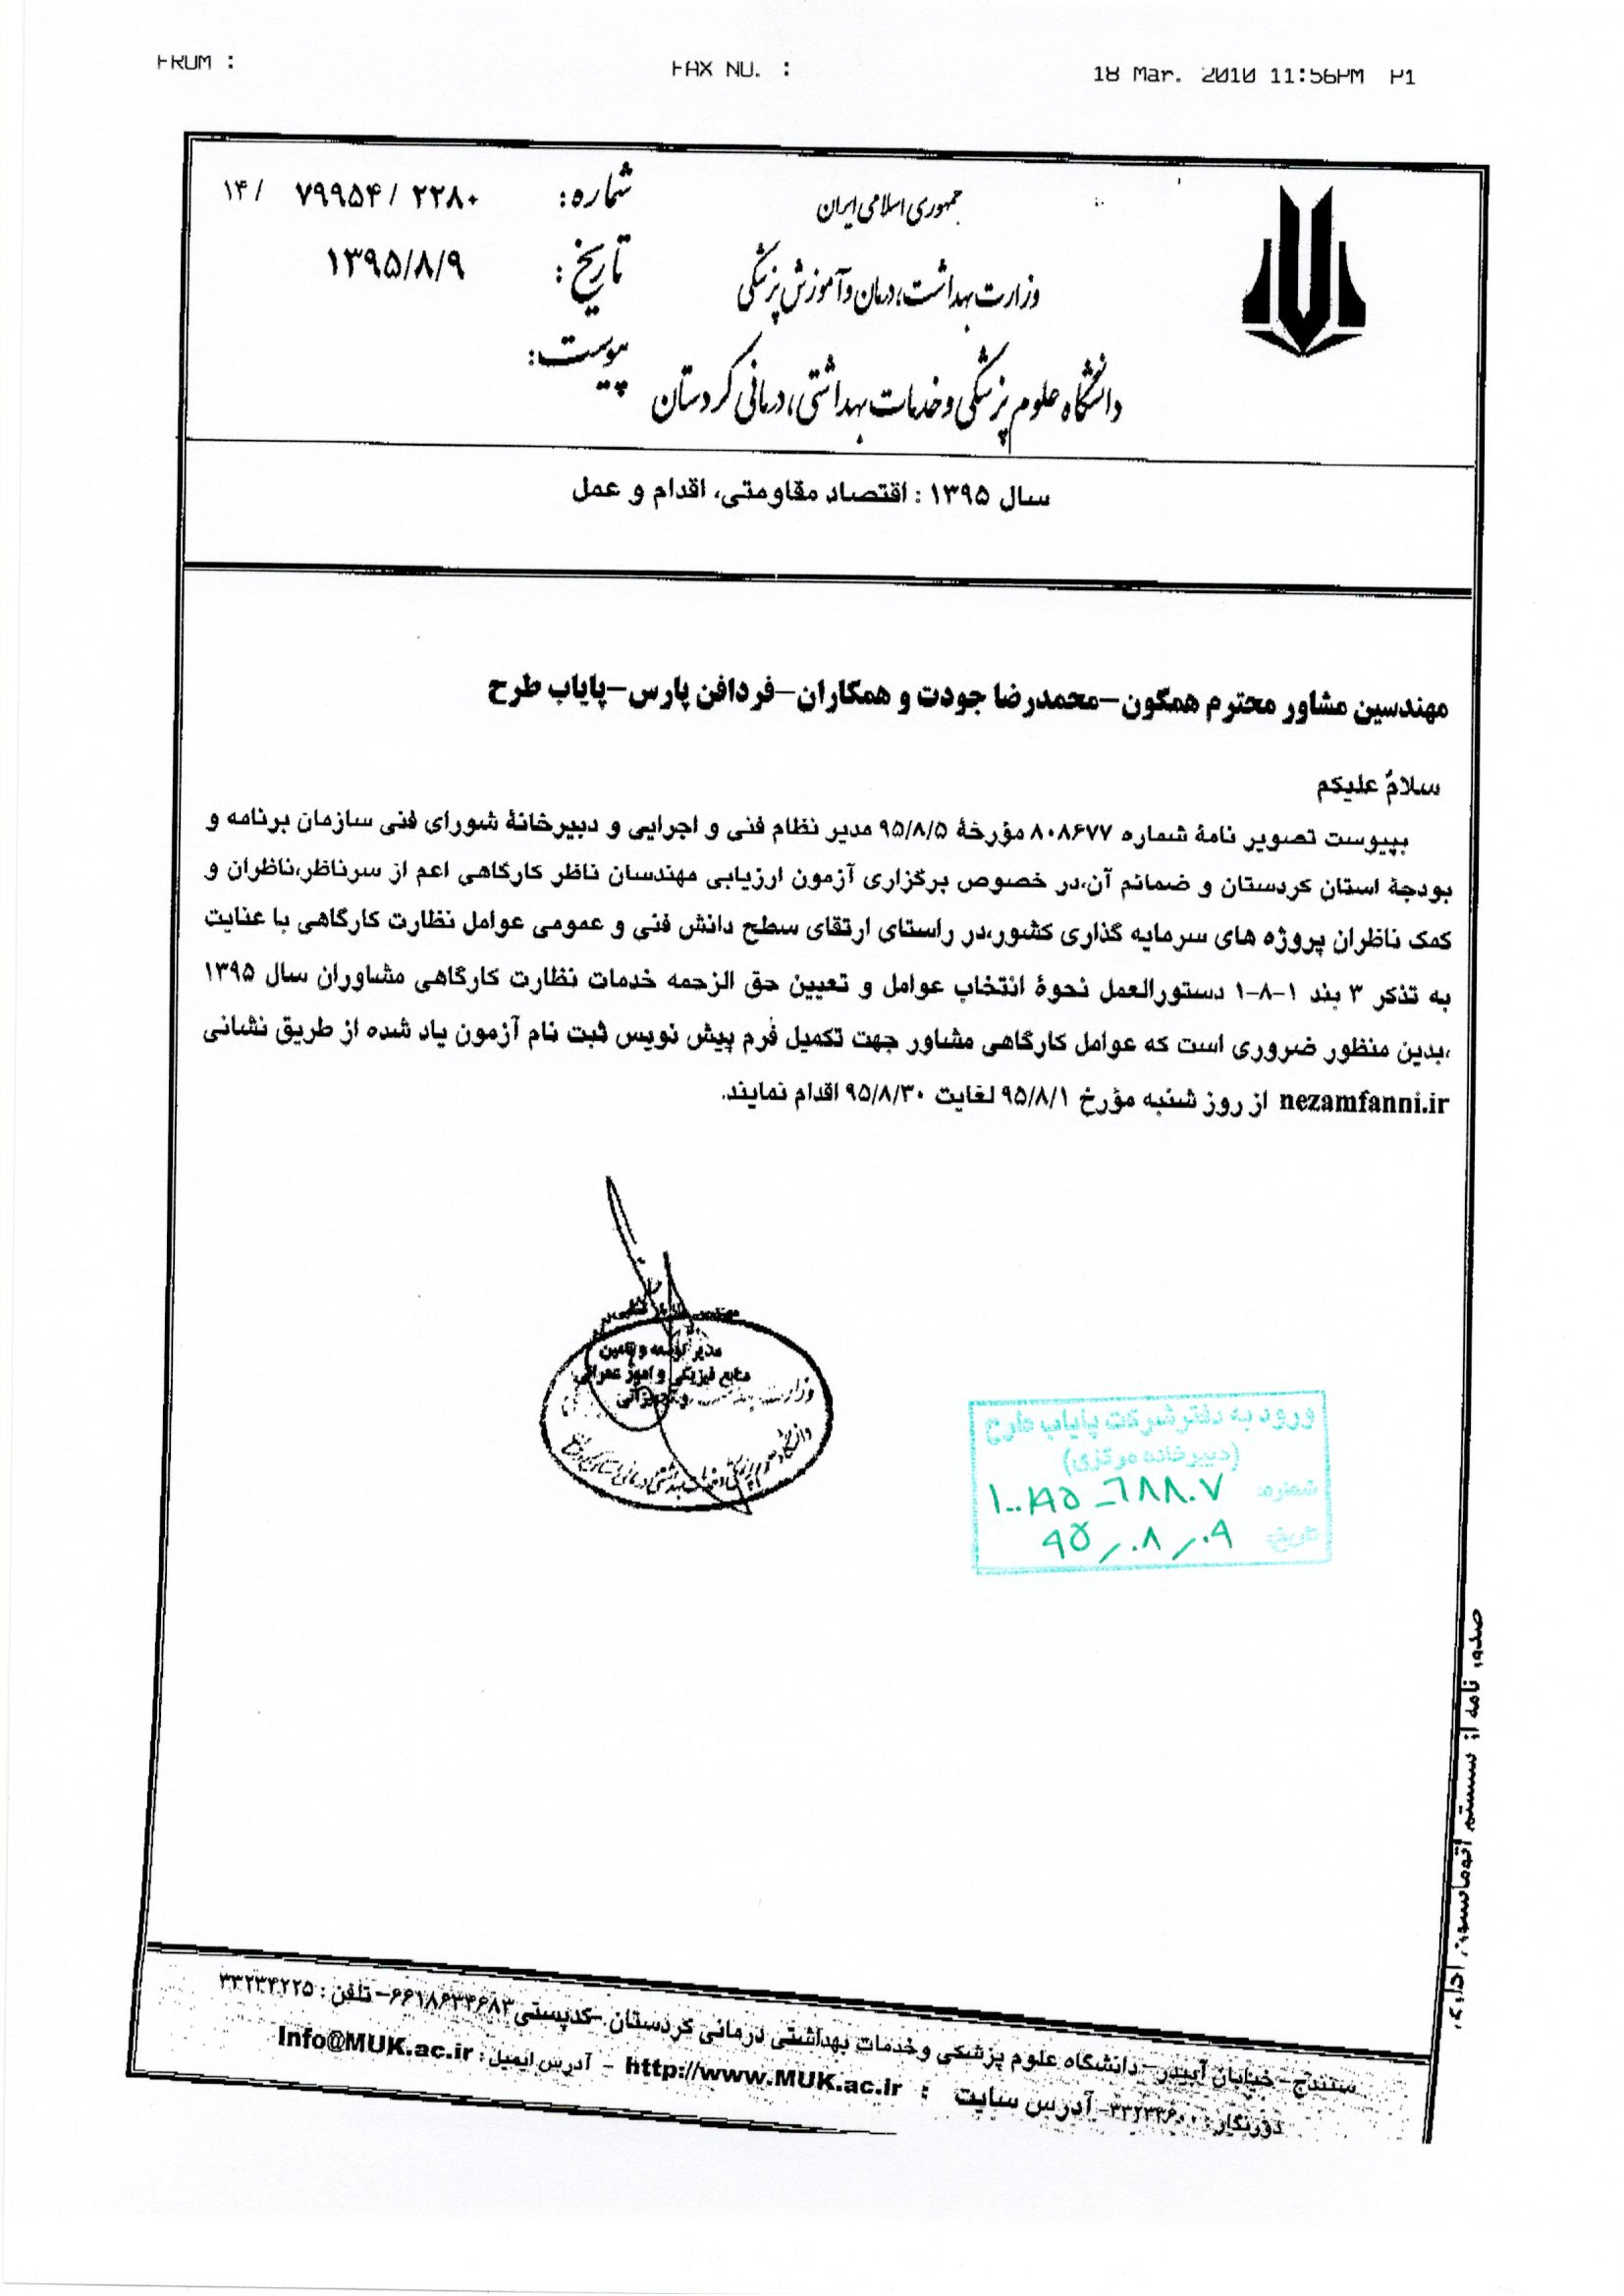 FROM :
FAX NO. :
18 Mar. 2010 11:56PM P1
جمهوری اسلامی ایران
وزارت بهداشت، درمان و آموزش پزشکی
دانشگاه علوم پزشکی و خدمات بهداشتی، درمانی کردستان
شماره: ۱۴/ ۷۹۹۵۴/ ۲۲۸۰
تاریخ: ۱۳۹۵/۸/۹
پیوست:
سال ۱۳۹۵ : اقتصاد مقاومتی، اقدام و عمل
مهندسین مشاور محترم همگون-محمدرضا جودت و همکاران-فردافن پارس-پایاب طرح
سلامٌ علیکم
بپیوست تصویر نامۀ شماره ۸۰۸۶۷۷ مؤرخۀ ۹۵/۸/۵ مدیر نظام فنی و اجرایی و دبیرخانۀ شورای فنی سازمان برنامه و
بودجۀ استان کردستان و ضمائم آن،در خصوص برگزاری آزمون ارزیابی مهندسان ناظر کارگاهی اعم از سرناظر،ناظران و
کمک ناظران پروژه های سرمایه گذاری کشور،در راستای ارتقای سطح دانش فنی و عمومی عوامل نظارت کارگاهی با عنایت
به تذکر ۳ بند ۱-۸-۱ دستورالعمل نحوۀ انتخاب عوامل و تعیین حق الزحمه خدمات نظارت کارگاهی مشاوران سال ۱۳۹۵
،بدین منظور ضروری است که عوامل کارگاهی مشاور جهت تکمیل فرم پیش نویس ثبت نام آزمون یاد شده از طریق نشانی
nezamfanni.ir از روز شنبه مؤرخ ۹۵/۸/۱ لغایت ۹۵/۸/۳۰ اقدام نمایند.
مدیر توسعه و تامین
منابع فیزیکی و امور عمرانی
ورود به دفتر شرکت پایاب طرح
(دبیرخانه مرکزی)
شماره: ۱۰۰۸۹۵-۶۸۸۰۷
تاریخ: ۹۵/۰۸/۰۹
صدور نامه از سیستم اتوماسیون اداری
سنندج- خیابان آبیدر- دانشگاه علوم پزشکی وخدمات بهداشتی درمانی کردستان -کدپستی ۶۶۱۸۶۳۴۶۸۳- تلفن : ۳۳۲۳۴۲۲۵
دورنگار : ۳۳۲۳۳۶۰۰- آدرس سایت : http://www.MUK.ac.ir - آدرس ایمیل : Info@MUK.ac.ir